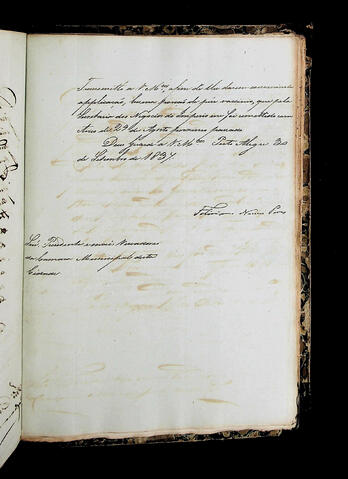 Transmitto a V. M.ces, a fim de lhe darem a conveniente
applicação, huma porção de pus vaccino, que pela
Secretaria dos Negocios do Imperio me foi remettido com
Aviso de 29 de Agosto proximo passado
Deos Guarde a V. M.ces Porto Alegre 20
de Setembro de 1837.
Nunes Pires
Snrs. Presidente e mais Vereadores
da Camara Municipal desta
Cidade